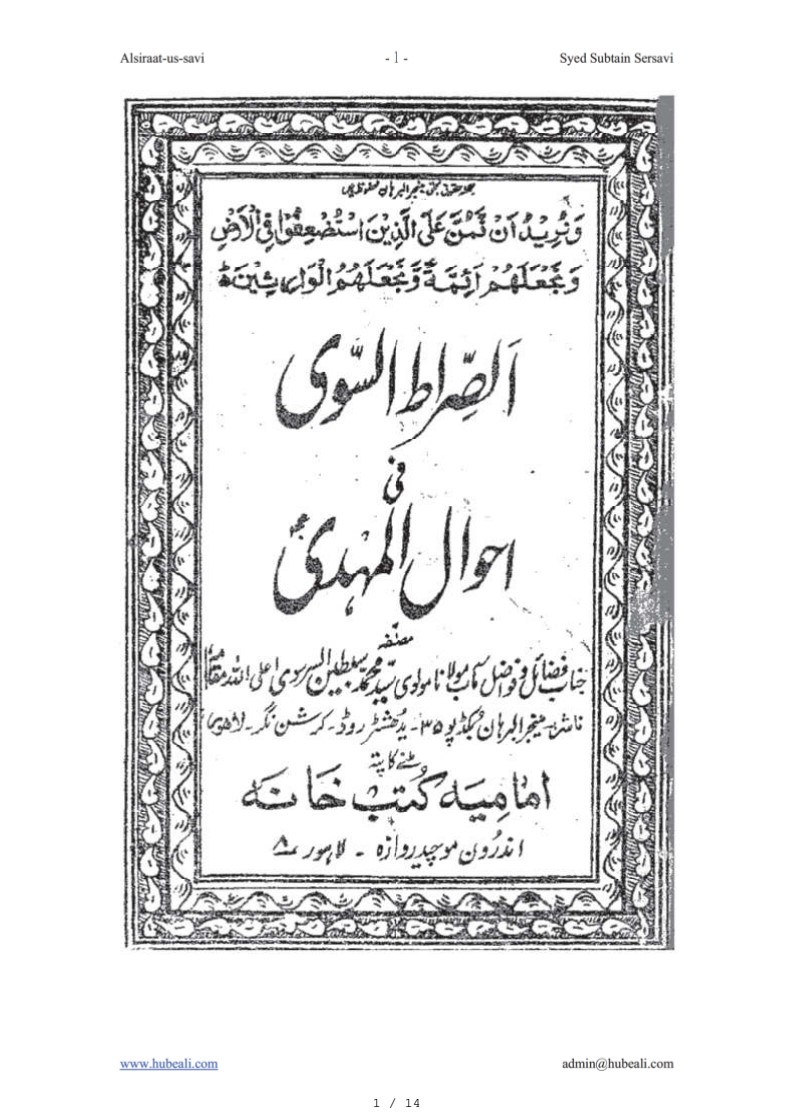 Alsiraat-us-savi - 1 - Syed Subtain Sersavi
جملہ حقوق بحق مینجر البرہان محفوظ ہیں
وَنُرِيْدُ اَنْ نَّمُنَّ عَلَى الَّذِيْنَ اسْتُضْعِفُوْا فِى الْاَرْضِ
وَنَجْعَلَهُمْ اَئِمَّةً وَّنَجْعَلَهُمُ الْوَارِثِيْنَ ط
اَلصِّراط السَّوی
فی
احوال المہدی
مصنفہ
جناب فضائل و فواضل مآب مولانا مولوی سیّد محمد سبطین السرسوی اعلی اللہ مقامہ
ناشر۔ مینجر البرہان بکڈپو ۳۵۔ یدھشٹر روڈ۔ کرشن نگر۔ لاہور
ملنے کا پتہ
امامیہ کُتب خانہ
اندرُون موچیدروازہ ۔ لاہور ۸
www.hubeali.com admin@hubeali.com
1 / 14